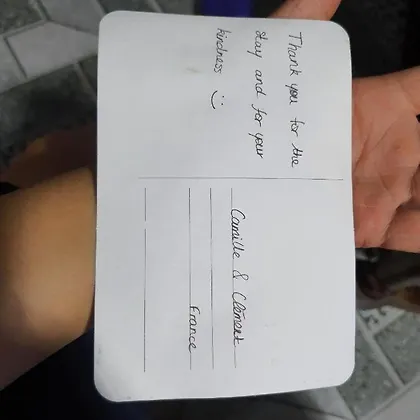 Thank you for the
stay and for your
kindness :)
Camille & Clément
France